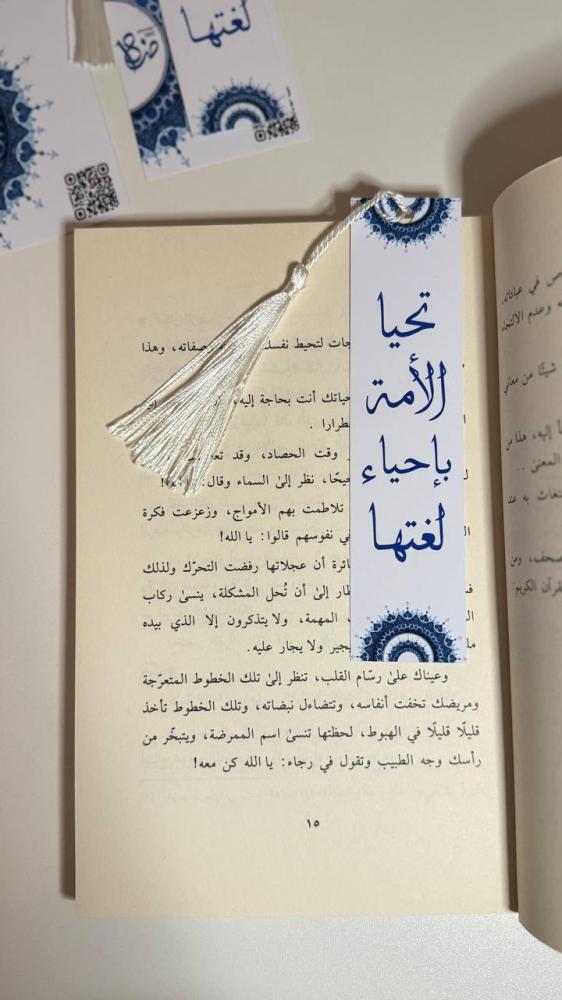 لغتها
ضاد
تحيا
الأمة
بإحياء
لغتها
لتحيط نفسك صفاته، وهذا
حياتك أنت بحاجة إليه،
وقت الحصاد، وقد
نظر إلىٰ السماء وقال:
تلاطمت بهم الأمواج، وزعزعت فكرة
في نفوسهم قالوا: يا الله!
أن عجلاتها رفضت التحرّك ولذلك
إلىٰ أن تُحل المشكلة، ينسىٰ ركاب
المهمة، ولا يتذكرون إلا الذي بيده
يجير ولا يجار عليه.
وعيناك علىٰ رسّام القلب، تنظر إلىٰ تلك الخطوط المتعرّجة
ومريضك تخفت أنفاسه، وتتضاءل نبضاته، وتلك الخطوط تأخذ
قليلًا قليلًا في الهبوط، لحظتها تنسىٰ اسم الممرضة، ويتبخّر من
رأسك وجه الطبيب وتقول في رجاء: يا الله كن معه!
١٥
في عباداته،
وعدم الالتجاء
شيئًا من معاني
إليه، هذا من
المعنىٰ ..
به عند
ومن
القرآن الكريم: